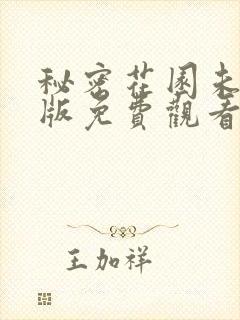 秘密花園未
版免費觀看
王加祥